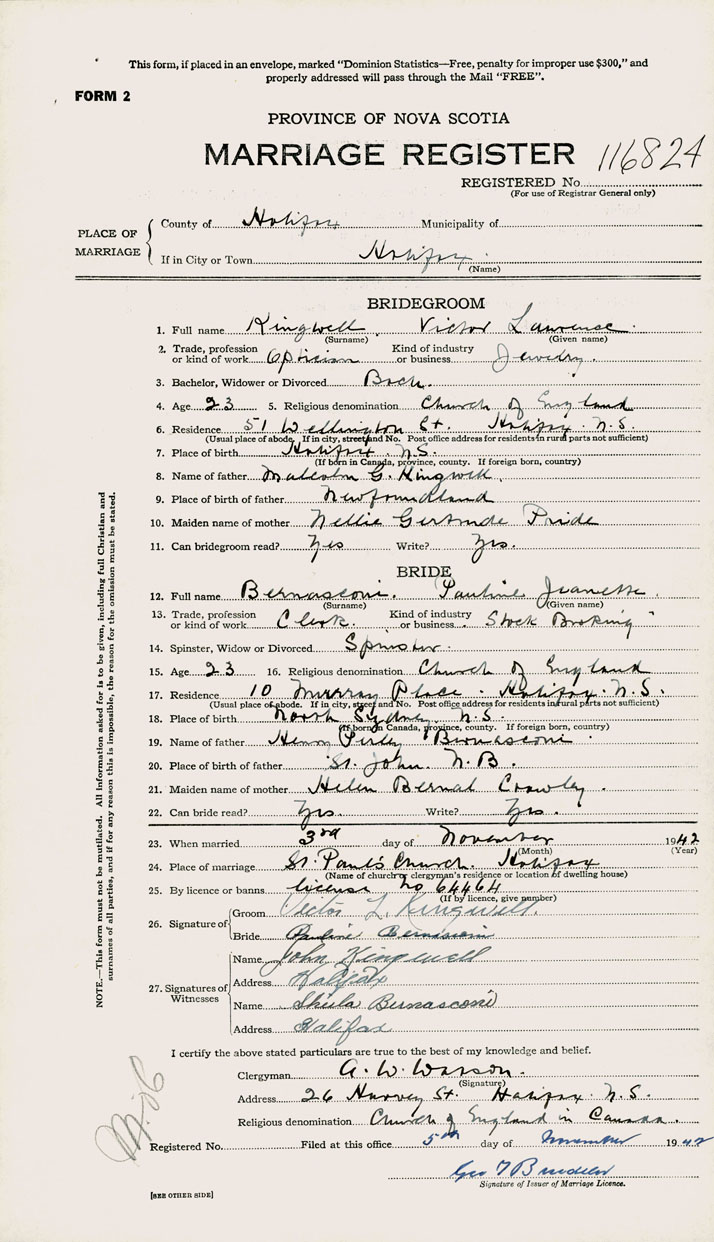 This form, if placed in an envelope, marked "Dominion Statistics—Free, penalty for improper use $300," and
properly addressed will pass through the Mail "FREE".
FORM 2
PROVINCE OF NOVA SCOTIA
MARRIAGE REGISTER 116824
REGISTERED No.
(For use of Registrar General only)
PLACE OF MARRIAGE
County of Halifax Municipality of
If in City or Town Halifax
(Name)
BRIDEGROOM
1. Full name Kingwell Victor Lawrence
(Surname) (Given name)
2. Trade, profession or kind of work Optician Kind of industry or business Jewelry.
3. Bachelor, Widower or Divorced Bach.
4. Age 23 5. Religious denomination Church of England
6. Residence 51 Wellington St. Halifax. N.S.
(Usual place of abode. If in city, street and No. Post office address for residents in rural parts not sufficient)
7. Place of birth Halifax N.S.
(If born in Canada, province, county. If foreign born, country)
8. Name of father Malcolm G. Kingwell.
9. Place of birth of father Newfoundland
10. Maiden name of mother Nellie Gertrude Pride
11. Can bridegroom read? Yes Write? Yes.
BRIDE
12. Full name Bernasconi. Pauline Jeanette.
(Surname) (Given name)
13. Trade, profession or kind of work Clerk. Kind of industry or business Stock Broking
14. Spinster, Widow or Divorced Spinster.
15. Age 23 16. Religious denomination Church of England
17. Residence 10 Murray Place. Halifax. N.S.
(Usual place of abode. If in city, street and No. Post office address for residents in rural parts not sufficient)
18. Place of birth North Sydney N.S.
(If born in Canada, province, county. If foreign born, country)
19. Name of father Henry Bernasconi.
20. Place of birth of father St. John. N.B.
21. Maiden name of mother Helen Crowley.
22. Can bride read? Yes. Write? Yes.
23. When married 3rd day of November 1942
(Month) (Year)
24. Place of marriage St. Paul's Church. Halifax
(Name of church or clergyman's residence or location of dwelling house)
25. By licence or banns license No 64464
(If by licence, give number)
26. Signature of
Groom Victor L. Kingwell.
Bride Pauline Bernasconi
27. Signatures of Witnesses
Name John Kingwell
Address Halifax
Name Sheila Bernasconi
Address Halifax
I certify the above stated particulars are true to the best of my knowledge and belief.
Clergyman A. W. Watson.
(Signature)
Address 26 Harvey St. Halifax. N.S.
Religious denomination Church of England in Canada.
Registered No. Filed at this office 5th day of November 1942
Signature of Issuer of Marriage Licence.
[SEE OTHER SIDE]
NOTE.—This form must not be mutilated. All information asked for is to be given, including full Christian and
surnames of all parties, and if for any reason this is impossible, the reason for the omission must be stated.